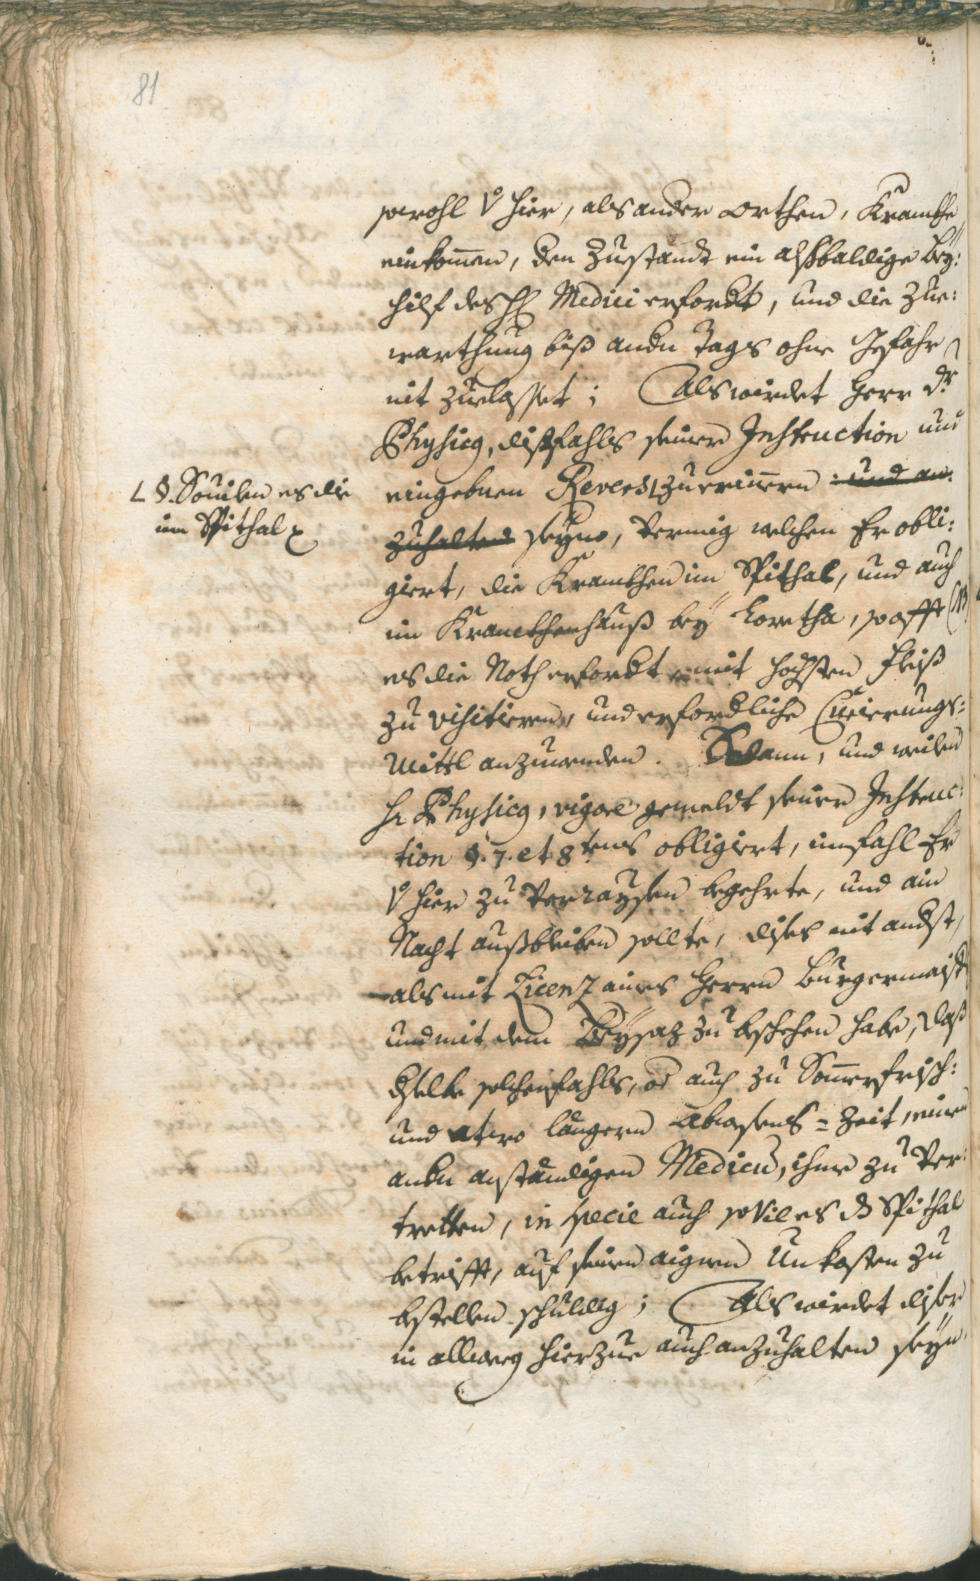 81
sowohl v. hier, als ander Orthen, Krankhe
einkom̄en, den Zustandt ein alßbaldige Bey:
hilf deß H. Medici erfordt, und die Zue:
warthung biß andn Tags ohne Gefahr
nit zuelasset; Als wirdet Herr Dr.
Physicg, dißfahls seiner Instruction und
eingebnen Revers zuerin̄ern : und an:
L §. Souilen es die
im Spithal
zuhalten seyn, vermig welchen Er obli:
giert, die Krankhen im Spithal, und auch
im Krankhenhauß bey Loretha, so offt
es die Noth erfordt mit höchsten Fleiß
zu visitieren, und erfordliche Curierungs:
Mittl anzuwenden. Sodann, und weilen
H. Physicg, vigore gemeldt seiner Instruc:
tion §. 7. et 8tens obligiert, im fahl Er
v. hier zu verraysen begehrte, und ain
Nacht außbleiben sollte, dises nit andst,
als mit Licenz aines Herrn Burgermaistr
und mit dem Beysaz zu beschehen habe, daß
dselbe solchenfahls, od auch zu Som̄erfrisch:
und etwo längern Abwesens=Zeit, einen
andn anständigen Medicū, ihne zu ver:
tretten, in specie auch so vil es ds Spithal
betrifft, auf seinen aignen Unkosten zu
bestellen schuldig; Als wirdet diser
in allweg hierzue auch anzuhalten seyn,